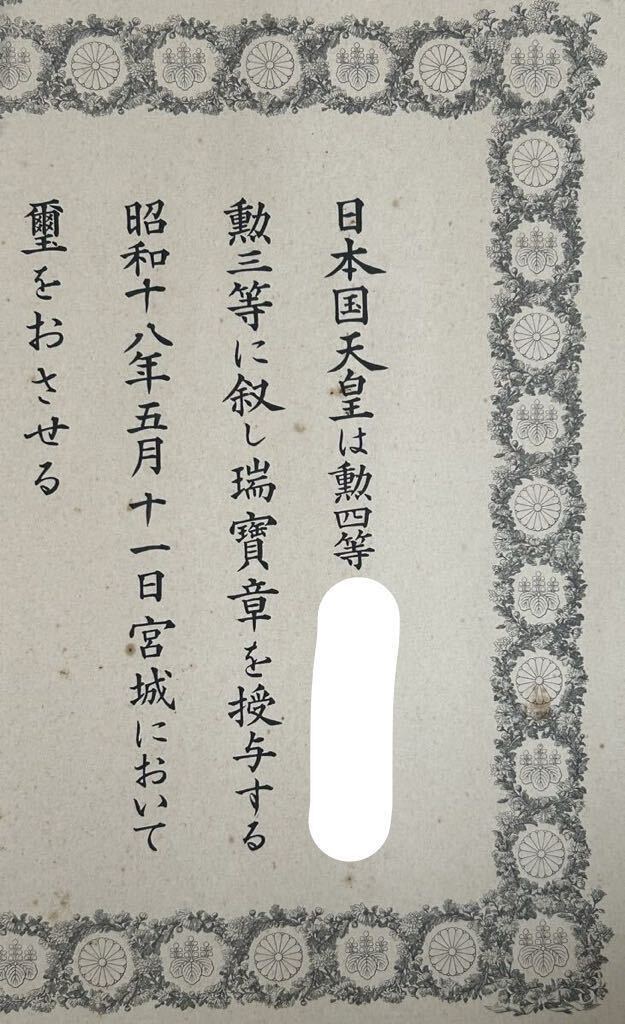 日本国天皇は勲四等
勲三等に叙し瑞寶章を授与する
昭和十八年五月十一日宮城において
璽をおさせる